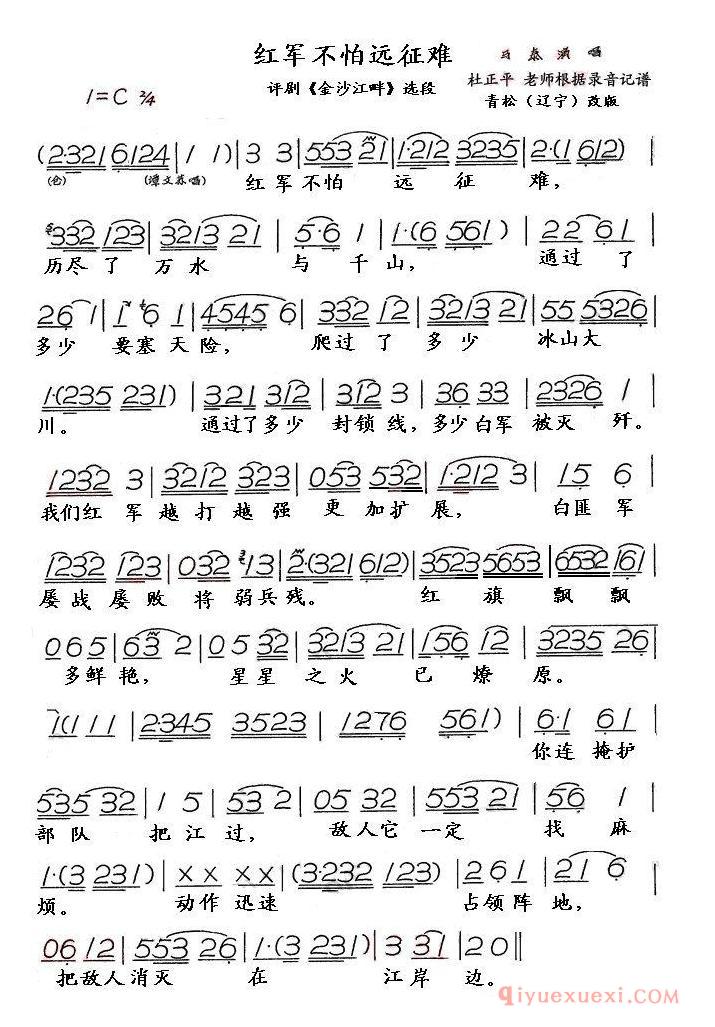 红军不怕远征难
评剧《金沙江畔》选段
马泰演唱
杜正平 老师根据录音记谱
青松（辽宁）改版
1=C 2/4
(2·321 6124 | 1 1) | 3 3 | 553 21 | 1·212 3235 | 2·(1 612) |
(仓) (谭文苏唱) 红军不怕 远征难，
332 123 | 3213 21 | 5·6 1 | 1·(6 561) | 22 61 |
历尽了万水与千山， 通过了
26 1 | 1 6 1 | 4545 6 | 332 12 | 3213 21 | 55 5326 |
多少要塞天险， 爬过了多少冰山大
1·(235 231) | 321 312 | 3·212 3 | 36 33 | 2326 1 |
川。 通过了多少封锁线，多少白军被灭歼。
1232 3 | 3212 323 | 053 532 | 1·212 3 | 15 6 |
我们红军越打越强更加扩展， 白匪军
1232 123 | 032 13 | 2·(321 612) | 3523 5653 | 6532 161 |
屡战屡败将弱兵残。 红旗飘飘
065 | 63 2 | 05 32 | 3213 21 | 56 12 | 3235 26 |
多鲜艳， 星星之火已燎原。
1(111 | 2345 3523 | 1276 561) | 6·1 61 |
你连掩护
535 32 | 1 5 | 53 2 | 05 32 | 553 21 | 56 1 |
部队把江过， 敌人它一定找麻
1·(3 231) | x x x x | (3·232 123) | 2 61 | 21 6 |
烦。 动作迅速 占领阵地，
06 12 | 553 26 | 1·(3 231) | 3 31 | 20 ||
把敌人消灭在江岸边。
qiyuexuexi.com